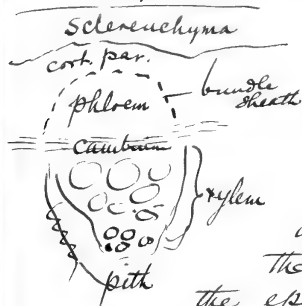 Sclerenchyma
cort. par.
phloem
bundle
sheath
cambium
xylem
pith
the